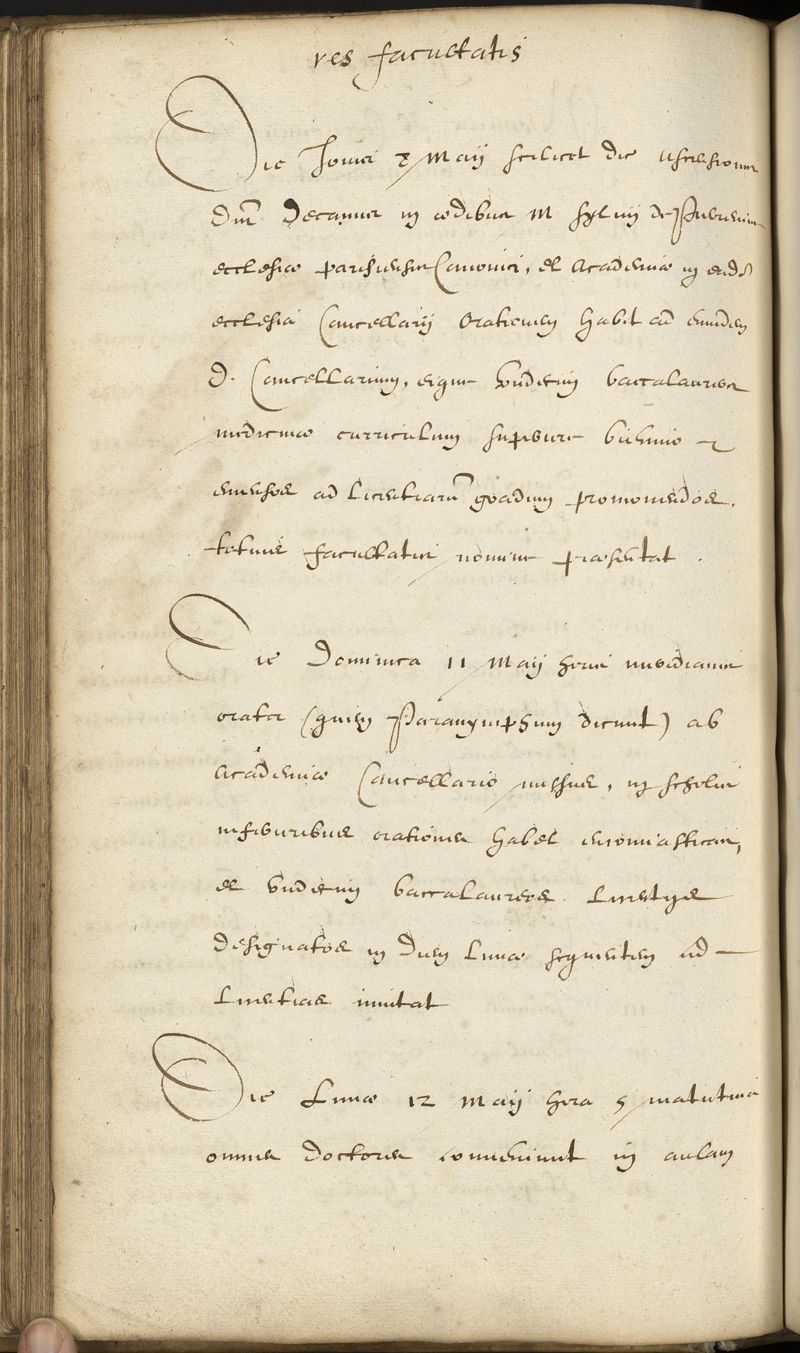 res facultatis
Die Jouis 8 Maij scilicet die Ascensionis
Dnus Decanus in ædibus M Syluij de
ecclesiæ parisiensis Canonici, et Academiæ in ead.
ecclesia Cancellarij Orationem habet ad eundem
D. Cancellarium, eique vndecim baccalaureos
medicinæ curriculum superiore biennio
emensos ad licentiarum gradum promouendos,
totius facultatis nomine præsentat.
Die Dominica 11 Maij horis meridianis
orator (quem Paranymphum dicunt) ab
Academiæ Cancellario missus, in scholis
inferioribus orationem habet
et vndecim baccalaureos licentijs
designatos in diem Lunæ sequentem ad
licentias inuitat
Die Lunæ 12 Maij hora 5 matutina
omnes doctores conueniunt in aulam